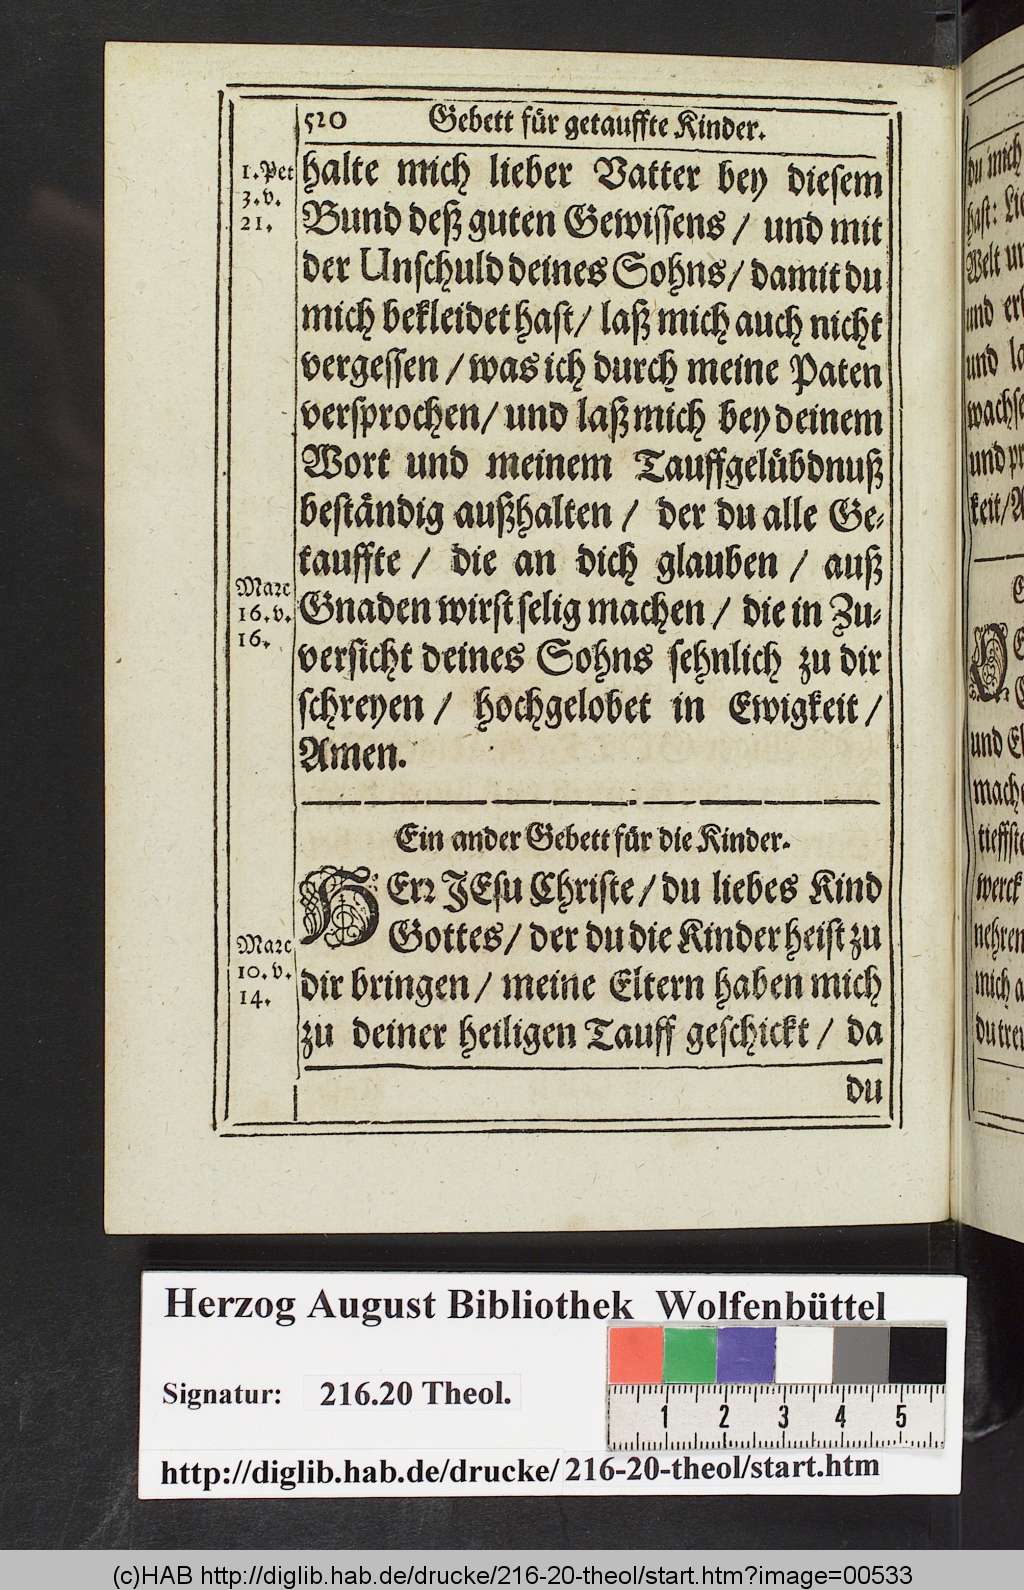 520 Gebett für getauffte Kinder.
1. Pet
3. v.
21.
halte mich lieber Vatter bey diesem
Bund deß guten Gewissens / und mit
der Unschuld deines Sohns / damit du
mich bekleidet hast / laß mich auch nicht
vergessen / was ich durch meine Paten
versprochen / und laß mich bey deinem
Wort und meinem Tauffgelübdnuß
beständig außhalten / der du alle Ge-
tauffte / die an dich glauben / auß
Marc
16. v.
16.
Gnaden wirst selig machen / die in Zu-
versicht deines Sohns sehnlich zu dir
schreyen / hochgelobet in Ewigkeit /
Amen.
Ein ander Gebett für die Kinder.
HErr JEsu Christe / du liebes Kind
Gottes / der du die Kinder heist zu
Marc
10. v.
14.
dir bringen / meine Eltern haben mich
zu deiner heiligen Tauff geschickt / da
du
du mich
hast: Lie
Welt un
und erl
und la
wachse
und pr
keit / A
und El
mache
tieffste
werck
nehren
mich a
du treu
Herzog August Bibliothek Wolfenbüttel
Signatur: 216.20 Theol.
1 2 3 4 5
http://diglib.hab.de/drucke/216-20-theol/start.htm
(c)HAB http://diglib.hab.de/drucke/216-20-theol/start.htm?image=00533